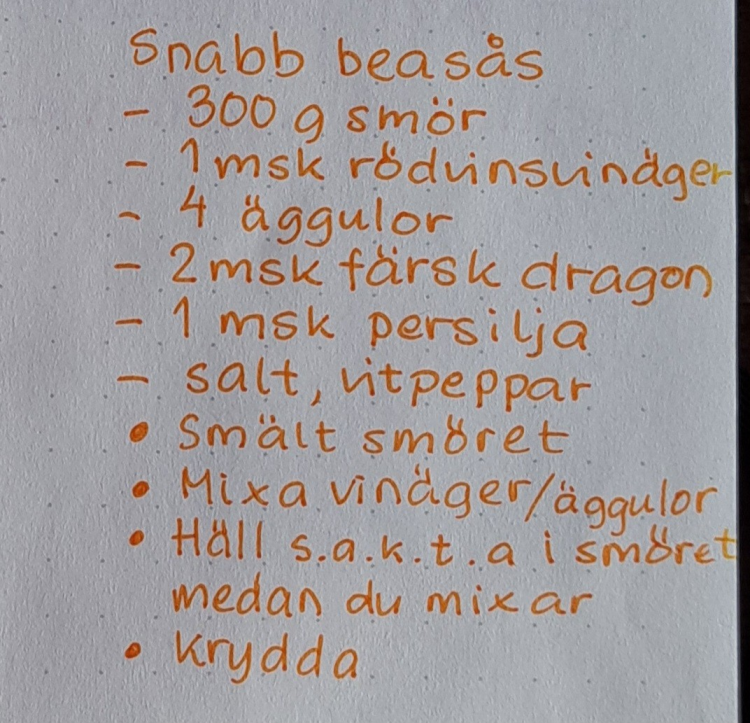 Snabb beasås
- 300 g smör
- 1 msk rödvinsvinäger
- 4 äggulor
- 2 msk färsk dragon
- 1 msk persilja
- salt, vitpeppar
• Smält smöret
• Mixa vinäger/äggulor
• Häll s.a.k.t.a i smöret
medan du mixar
• Krydda